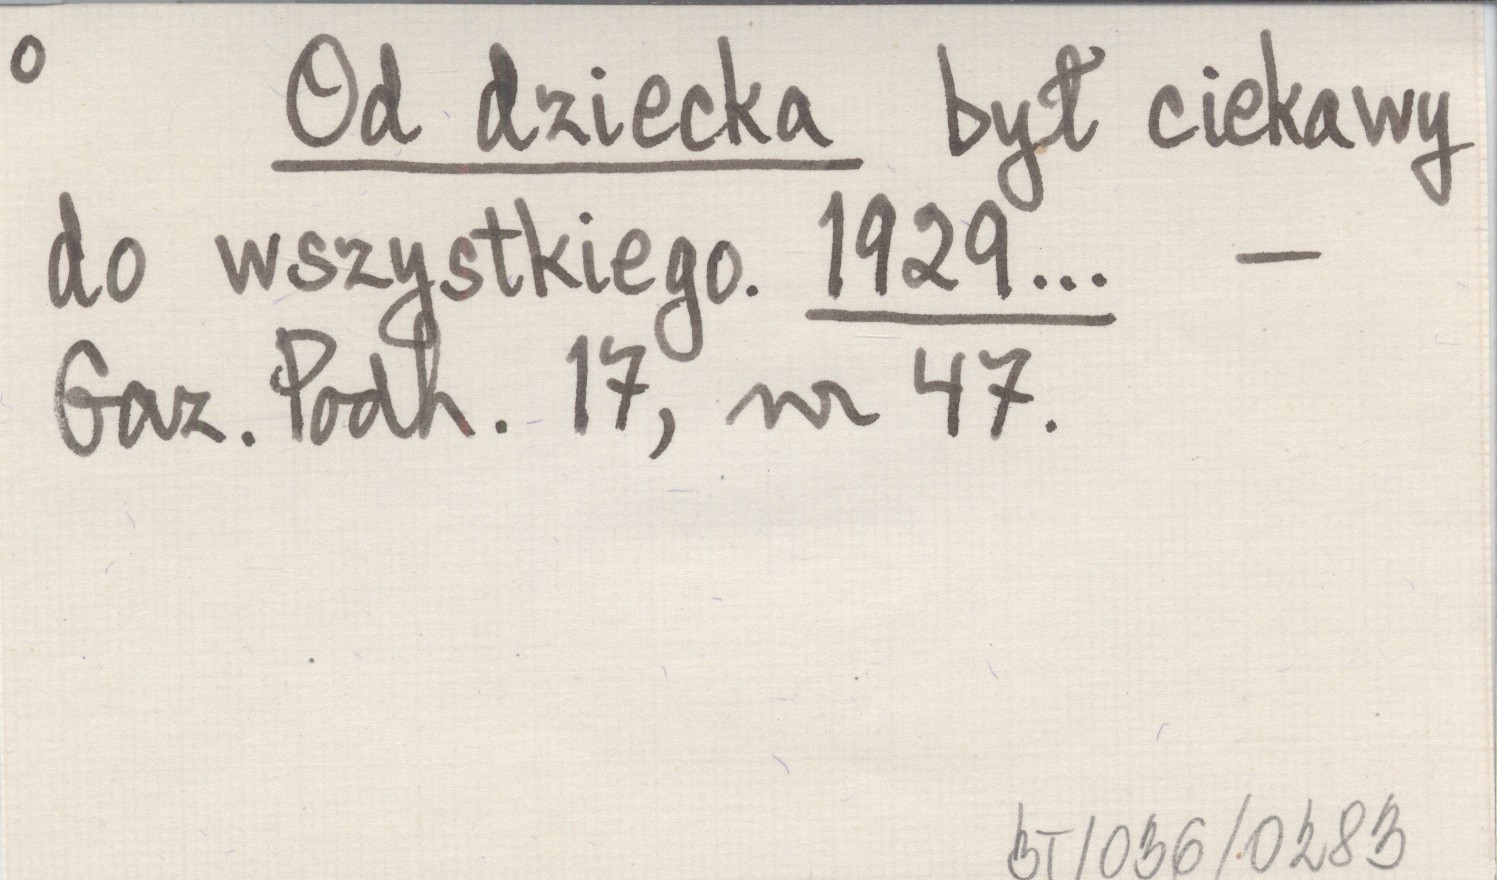 o Od dziecka był ciekawy
do wszystkiego. 1929... —
Gaz. Podh. 17, nr 47.
BT/036/0283